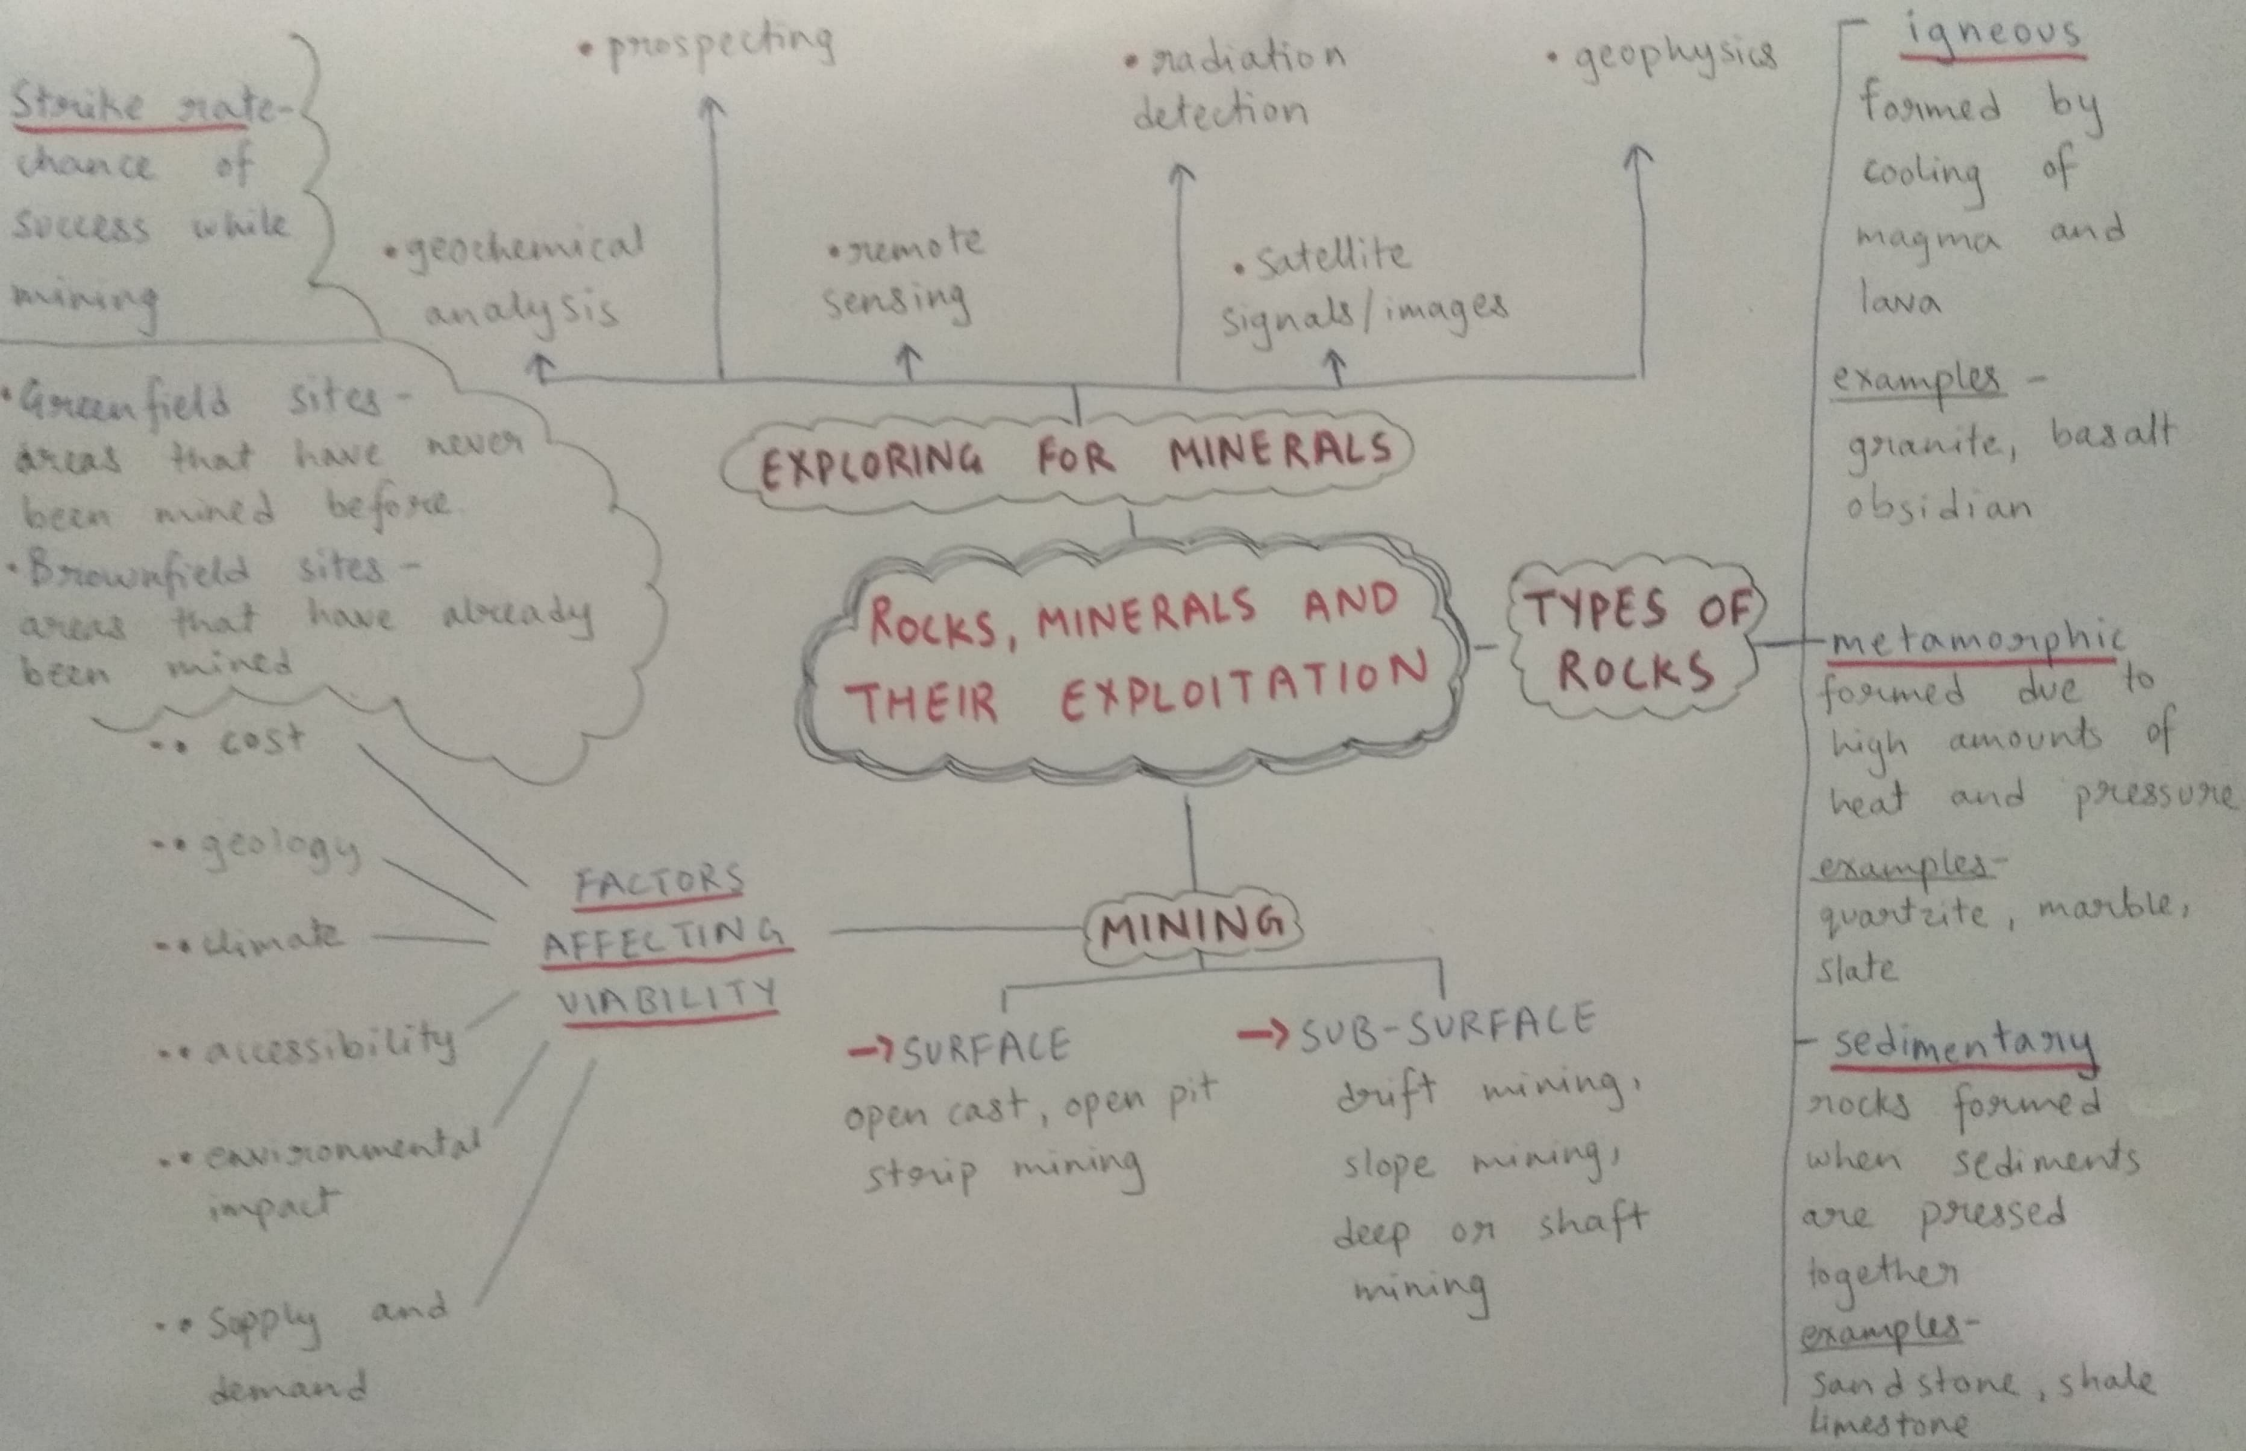 Strike rate-
chance of
success while
mining
• Greenfield sites -
areas that have never
been mined before.
• Brownfield sites -
areas that have already
been mined
• prospecting
• radiation
detection
• geophysics
• geochemical
analysis
• remote
sensing
• satellite
signals/images
EXPLORING FOR MINERALS
ROCKS, MINERALS AND
THEIR EXPLOITATION
TYPES OF
ROCKS
igneous
formed by
cooling of
magma and
lava
examples -
granite, basalt
obsidian
metamorphic
formed due to
high amounts of
heat and pressure
examples-
quartzite, marble,
slate
sedimentary
rocks formed
when sediments
are pressed
together
examples-
sandstone, shale
limestone
MINING
→ SURFACE
open cast, open pit
strip mining
→ SUB-SURFACE
drift mining,
slope mining,
deep or shaft
mining
FACTORS
AFFECTING
VIABILITY
•• cost
•• geology
•• climate
•• accessibility
•• environmental
impact
•• supply and
demand